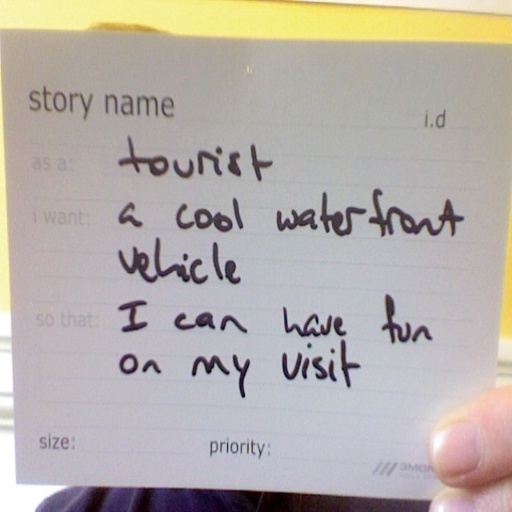 story name
i.d
as a: tourist
i want: a cool waterfront
vehicle
so that: I can have fun
on my visit
size: priority: